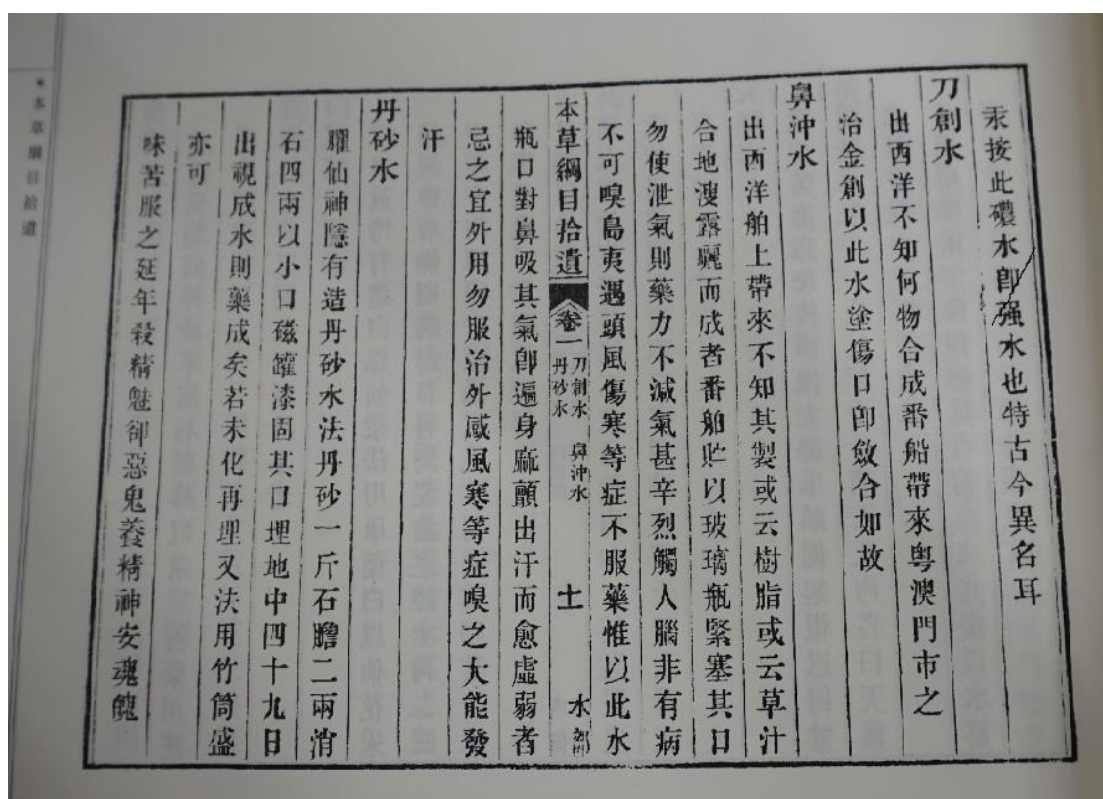 汞按此礶水卽强水也特古今異名耳
刀創水
出西洋不知何物合成番船帶來粵澳門市之
治金創以此水塗傷口卽斂合如故
鼻沖水
出西洋舶上帶來不知其製或云樹脂或云草汁
合地溲露曬而成者番舶貯以玻璃瓶緊塞其口
勿使泄氣則藥力不減氣甚辛烈觸人腦非有病
不可嗅島夷遇頭風傷寒等症不服藥惟以此水
本草綱目拾遺 卷一 刀創水 鼻沖水 丹砂水 十一 水部
瓶口對鼻吸其氣卽遍身麻顫出汗而愈虛弱者
忌之宜外用勿服治外感風寒等症嗅之大能發
汗
丹砂水
臞仙神隱有造丹砂水法丹砂一斤石膽二兩消
石四兩以小口磁罐漆固其口埋地中四十九日
出視成水則藥成矣若未化再埋又法用竹筒盛
亦可
味苦服之延年殺精魅卻惡鬼養精神安魂魄
本草綱目拾遺